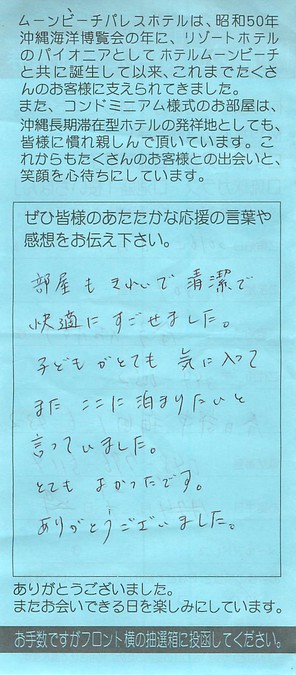 ムーンビーチパレスホテルは、昭和50年
沖縄海洋博覧会の年に、リゾートホテル
のパイオニアとしてホテルムーンビーチ
と共に誕生して以来、これまでたくさ
んのお客様に支えられてきました。
また、コンドミニアム様式のお部屋は、
沖縄長期滞在型ホテルの発祥地としても、
皆様に慣れ親しんで頂いています。こ
れからもたくさんのお客様との出会いと、
笑顔を心待ちにしています。
ぜひ皆様のあたたかな応援の言葉や
感想をお伝え下さい。
部屋もきれいで清潔で
快適にすごせました。
子どもがとても気に入って
またここに泊まりたいと
言っていました。
とてもよかったです。
ありがとうございました。
ありがとうございました。
またお会いできる日を楽しみにしています。
お手数ですがフロント横の抽選箱に投函してください。